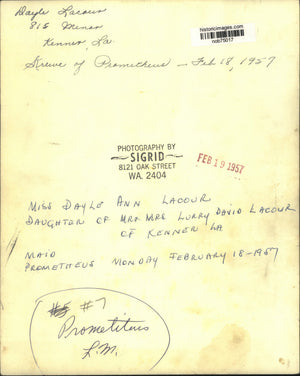 Dayle Lacour
815 Minor
Kenner, La.
historicimages.com
nob75017
Krewe of Prometheus — Feb 18, 1957
PHOTOGRAPHY BY
SIGRID
8121 OAK STREET
WA. 2404
FEB 19 1957
MISS DAYLE ANN LACOUR
DAUGHTER OF MR+MRS LURRY DAVID LACOUR
OF KENNER LA
MAID
PROMETHEUS MONDAY FEBRUARY 18-1957
#7
Prometitus
L.M.